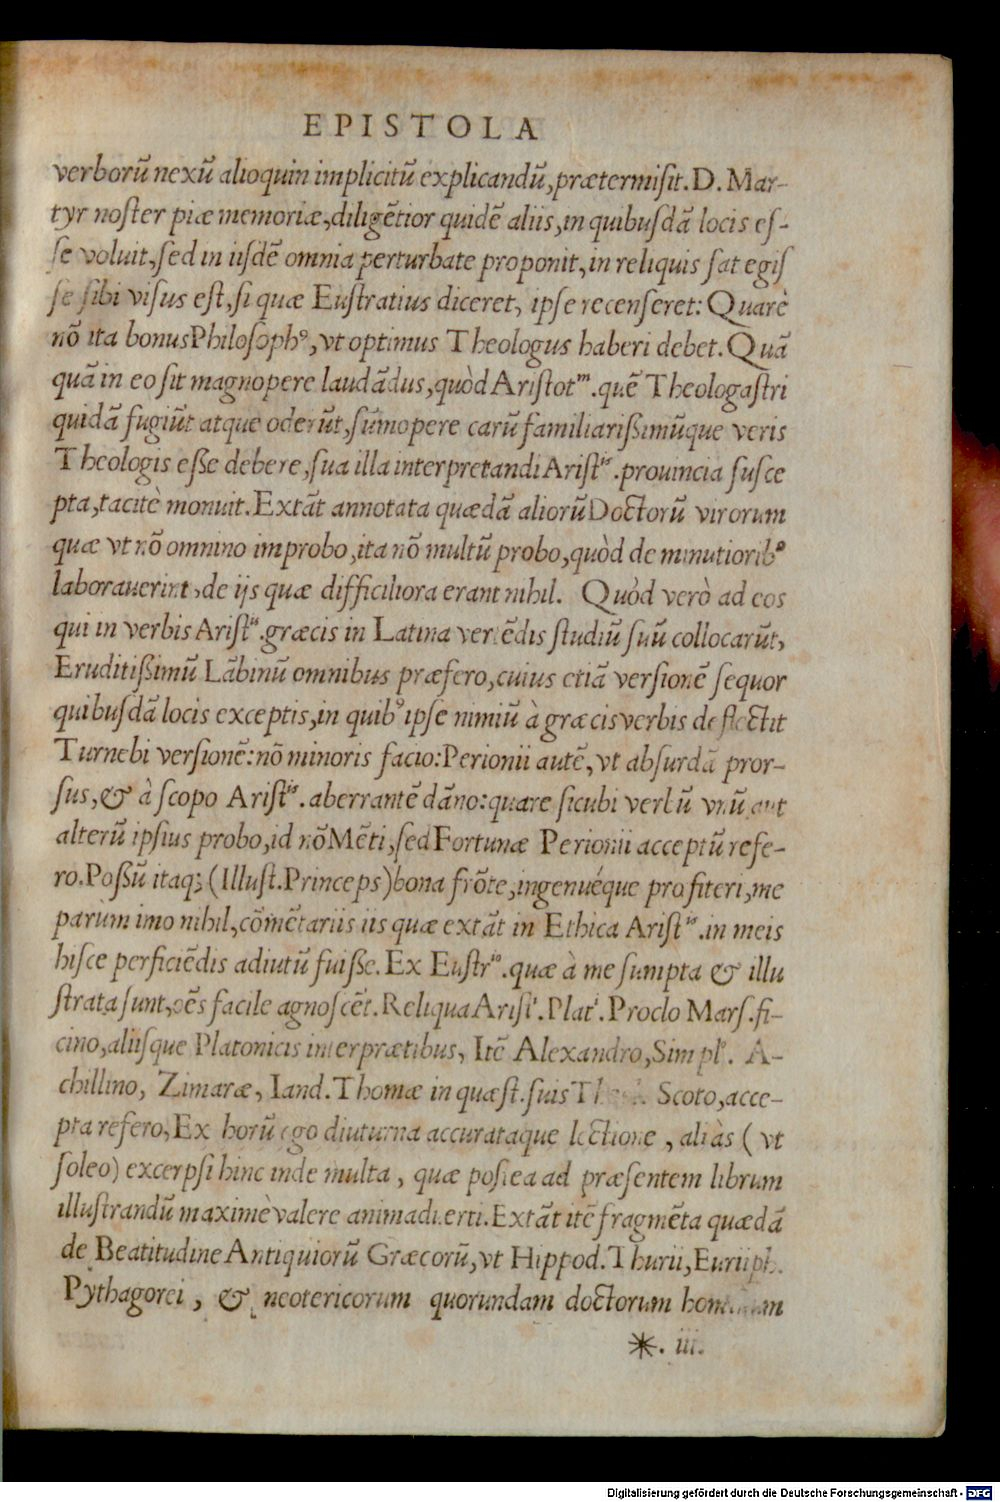 EPISTOLA
verborū nexū alioquin implicitū explicandū, prætermisit. D. Mar-
tyr noſter piæ memoriæ, diligētior quidē aliis, in quibuſdā locis eſ-
ſe voluit, ſed in iiſdē omnia perturbate proponit, in reliquis ſat egiſ
ſe ſibi viſus eſt, ſi quæ Euſtratius diceret, ipſe recenſeret: Quarè
nō ita bonus Philoſophꝰ, vt optimus Theologus haberi debet. Quā
quā in eo ſit magnopere laudādus, quòd Ariſtotᵐ. quē Theologaſtri
quidā fugiūt atque oderūt, ſūmopere carū familiarißimūque veris
Theologis eße debere, ſua illa interpretandi Ariſtⁱˢ. prouincia ſuſce
pta, tacitè monuit. Extāt annotata quædā aliorū Doctorū virorum
quæ vt nō omnino improbo, ita nō multū probo, quòd de minutioribꝰ
laborauerint, de ijs quæ difficiliora erant nihil. Quòd verò ad eos
qui in verbis Ariſtⁱˢ. græcis in Latina vertēdis ſtudiū ſuū collocarūt,
Eruditißimū Lābinū omnibus præfero, cuius etiā verſionē ſequor
quibuſdā locis exceptis, in quibꝰ ipſe nimiū à græcis verbis deflectit
Turnebi verſionē: nō minoris facio: Perionii autē, vt abſurdā pror-
ſus, & à ſcopo Ariſtⁱˢ. aberrantē dāno: quare ſicubi verbū vnū aut
alterū ipſius probo, id nō Mēti, ſed Fortunæ Perionii acceptū refe-
ro. Poßū itaq; (Illuſt. Princeps) bona frōte, ingenuéque profiteri, me
parùm imo nihil, cōmētariis iis quæ extāt in Ethica Ariſtⁱˢ. in meis
hiſce perficiēdis adiutū fuiße. Ex Euſtrⁱᵒ. quæ à me ſumpta & illu
ſtrata ſunt, oēs facile agnoſcēt. Reliqua Ariſtⁱ. Platⁱ. Proclo Marſ. fi-
cino, aliiſque Platonicis interprætibus, Itē Alexandro, Simplᵒ. A-
chillino, Zimaræ, Iand. Thomæ in quæſt. ſuis Scoto, acce-
pta refero, Ex horū ego diuturna accurataque lectione, aliàs (vt
ſoleo) excerpſi hinc inde multa, quæ poſtea ad præſentem librum
illuſtrandū maximè valere animaduerti. Extāt itē fragmēta quædā
de Beatitudine Antiquiorū Græcorū, vt Hippod. Thurii, Euriiph.
Pythagorei, & neotericorum quorundam doctorum hominum
*. iii.
Digitalisierung gefördert durch die Deutsche Forschungsgemeinschaft - DFG